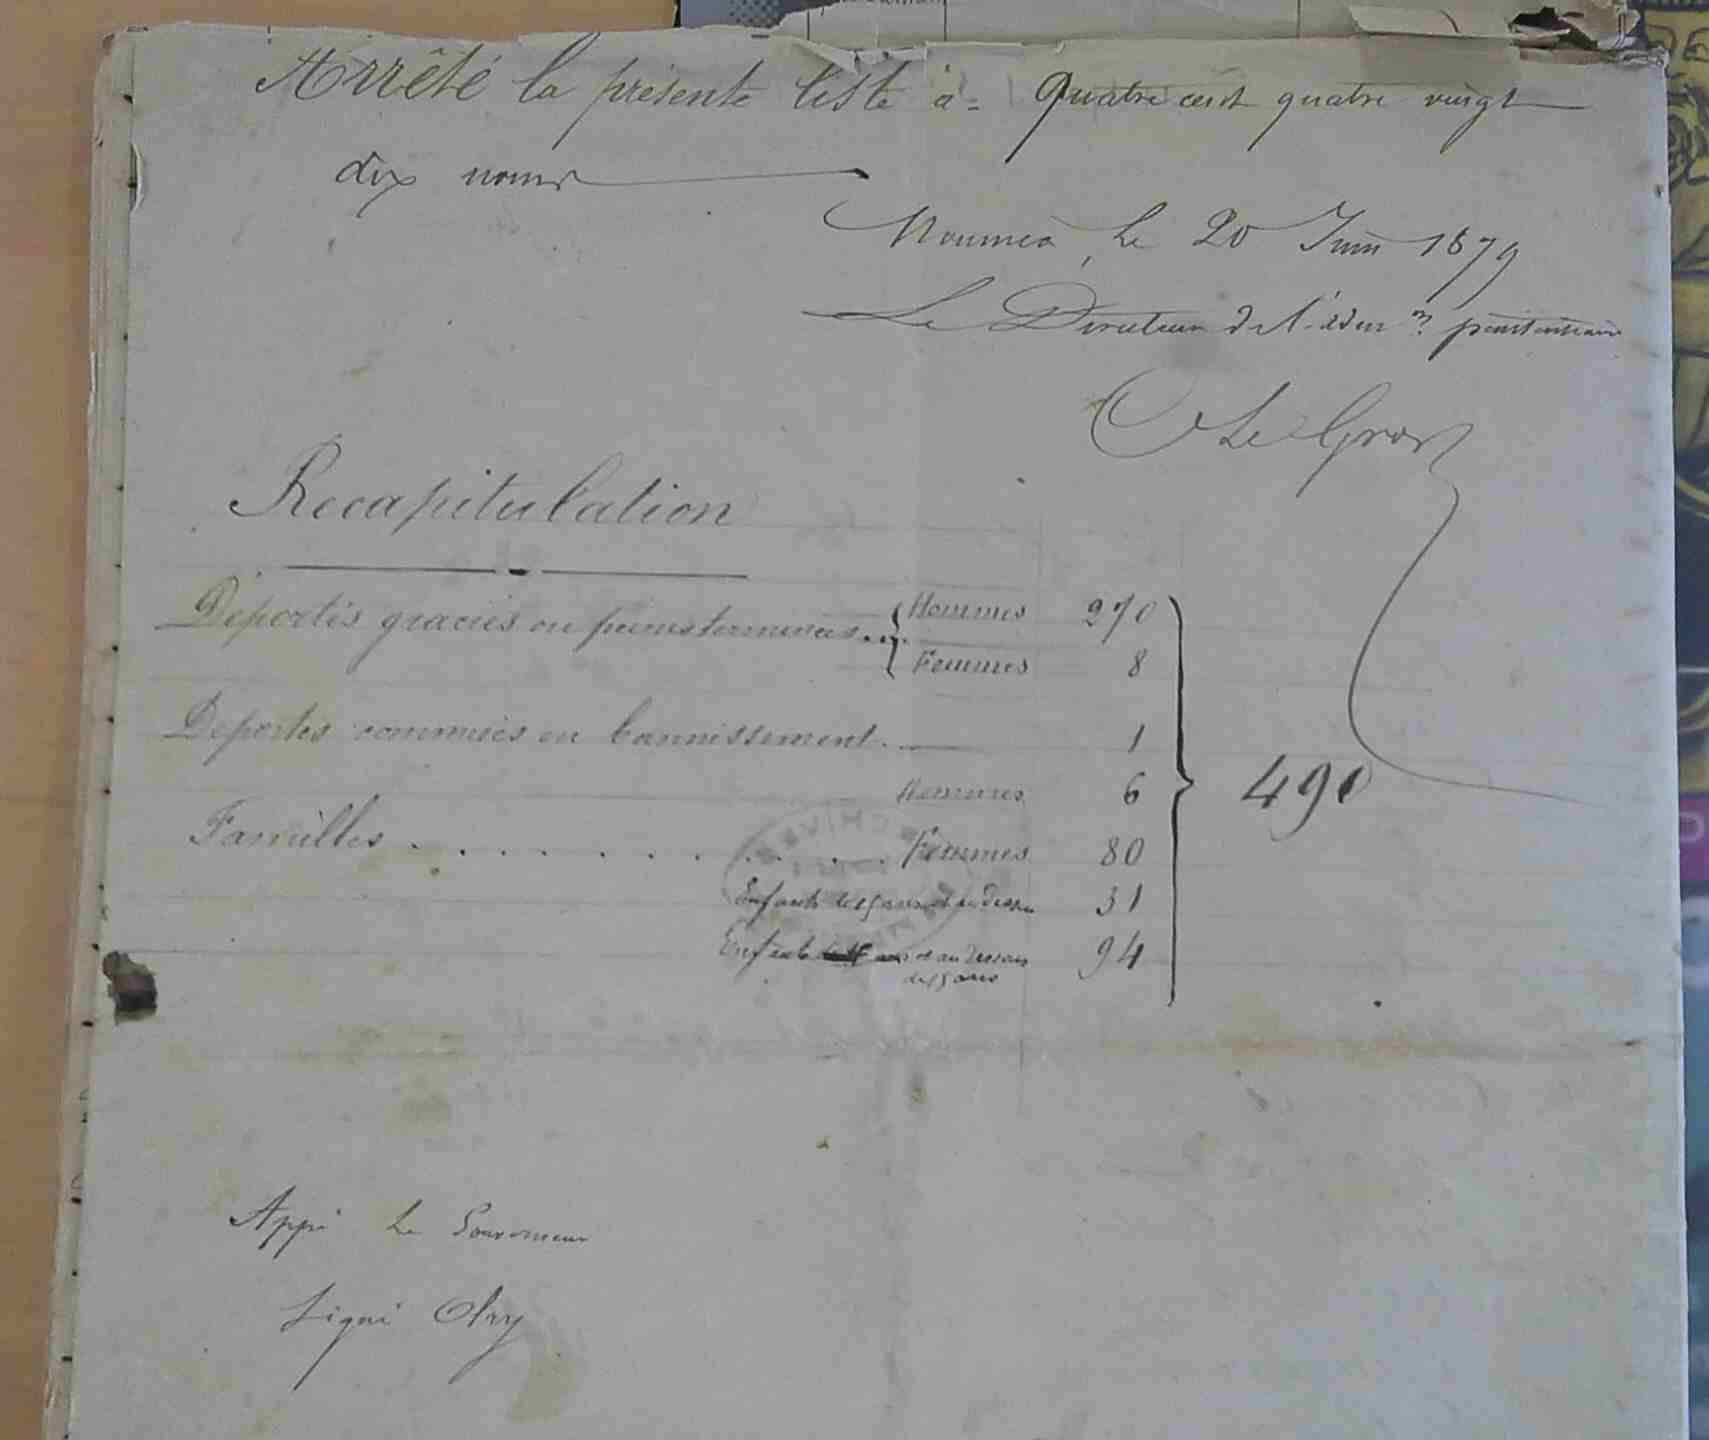 Arrêté la présente liste à = Quatre cent quatre vingt
dix noms
Nouméa, le 20 Juin 1879
Le Directeur de l'adm.on pénitentiaire
Le Gros
Recapitulation
Déportés graciés ou peines terminées... Hommes 270
Femmes 8
Déportés commués en bannissement. 1
Hommes 6
Familles . . . . . . . . . . Femmes 80
Enfants de 5 ans et au dessus 31
Enfants ans et au dessous 94
de 5 ans
490
Appé Le Gouverneur
Signé Olry